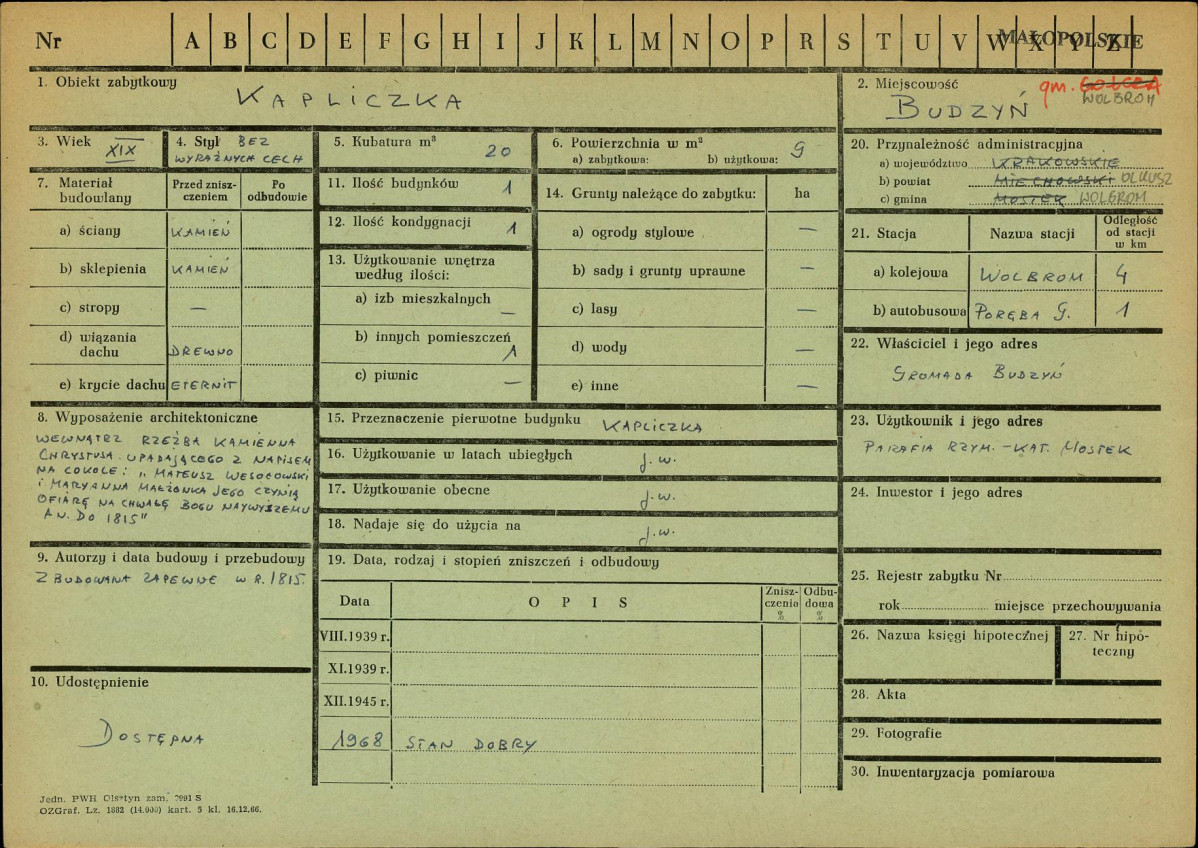 Nr A B C D E F G H I J K L M N O P R S T U V W X Y Z
MAŁOPOLSKIE
1. Obiekt zabytkowy
KAPLICZKA
2. Miejscowość
gm. GOŁCZA
WOLBROM
BUDZYŃ
3. Wiek
XIX
4. Styl BEZ
WYRAŹNYCH CECH
5. Kubatura m³
20
6. Powierzchnia w m²
a) zabytkowa: b) użytkowa: 9
20. Przynależność administracyjna
a) województwo KRAKOWSKIE
b) powiat MIECHOWSKI OLKUSZ
c) gmina MOSTEK WOLBROM
7. Materiał
budowlany
Przed znisz-
czeniem
Po
odbudowie
a) ściany KAMIEŃ
b) sklepienia KAMIEŃ
c) stropy —
d) wiązania
dachu DREWNO
e) krycie dachu ETERNIT
11. Ilość budynków 1
12. Ilość kondygnacji 1
13. Użytkowanie wnętrza
według ilości:
a) izb mieszkalnych —
b) innych pomieszczeń 1
c) piwnic —
14. Grunty należące do zabytku: ha
a) ogrody stylowe —
b) sady i grunty uprawne —
c) lasy —
d) wody —
e) inne —
21. Stacja Nazwa stacji Odległość
od stacji
w km
a) kolejowa WOLBROM 4
b) autobusowa PORĘBA G. 1
22. Właściciel i jego adres
GROMADA BUDZYŃ
8. Wyposażenie architektoniczne
WEWNĄTRZ RZEŹBA KAMIENNA
CHRYSTUSA UPADAJĄCEGO Z NAPISEM
NA COKOLE: „MATEUSZ WESOŁOWSKI
I MARYANNA MAŁŻONKA JEGO CZYNIĄ
OFIARĘ NA CHWAŁĘ BOGU NAYWYŻSZEMU
AN. DO 1815"
15. Przeznaczenie pierwotne budynku KAPLICZKA
16. Użytkowanie w latach ubiegłych j.w.
17. Użytkowanie obecne j.w.
18. Nadaje się do użycia na j.w.
23. Użytkownik i jego adres
PARAFIA RZYM.-KAT. MOSTEK
24. Inwestor i jego adres
9. Autorzy i data budowy i przebudowy
ZBUDOWANA ZAPEWNE W R. 1815.
19. Data, rodzaj i stopień zniszczeń i odbudowy
Data OPIS Znisz-
czenia
%
Odbu-
dowa
%
VIII.1939 r.
XI.1939 r.
XII.1945 r.
1968 STAN DOBRY
25. Rejestr zabytku Nr
rok miejsce przechowywania
26. Nazwa księgi hipotecznej
27. Nr hipo-
teczny
28. Akta
29. Fotografie
30. Inwentaryzacja pomiarowa
10. Udostępnienie
DOSTĘPNA
Jedn. PWH Olsztyn zam. 2991 S
OZGraf. Lz. 1882 (14.000) kart. 5 kl. 16.12.66.